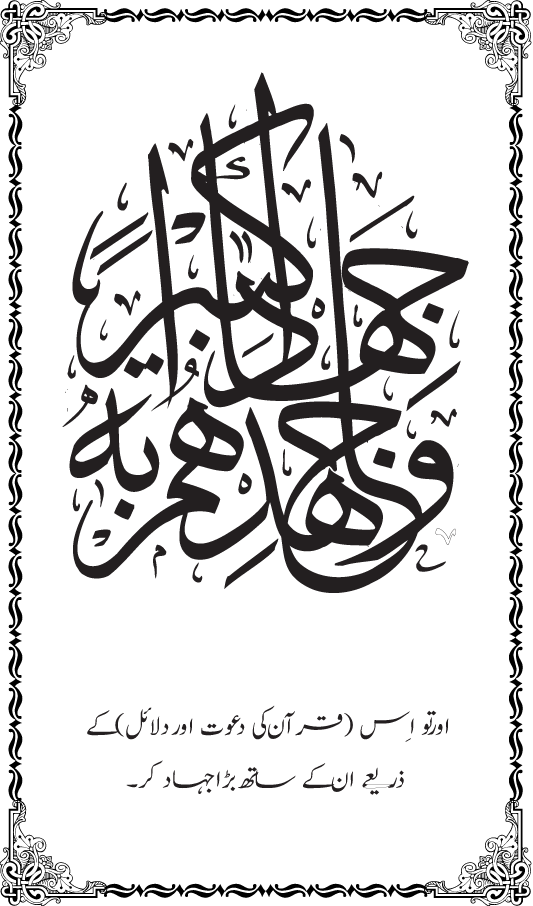 وجاهدهم به
جهادا كبيرا
اور تو اِس (قرآن کی دعوت اور دلائل) کے
ذریعے ان کے ساتھ بڑا جہاد کر۔